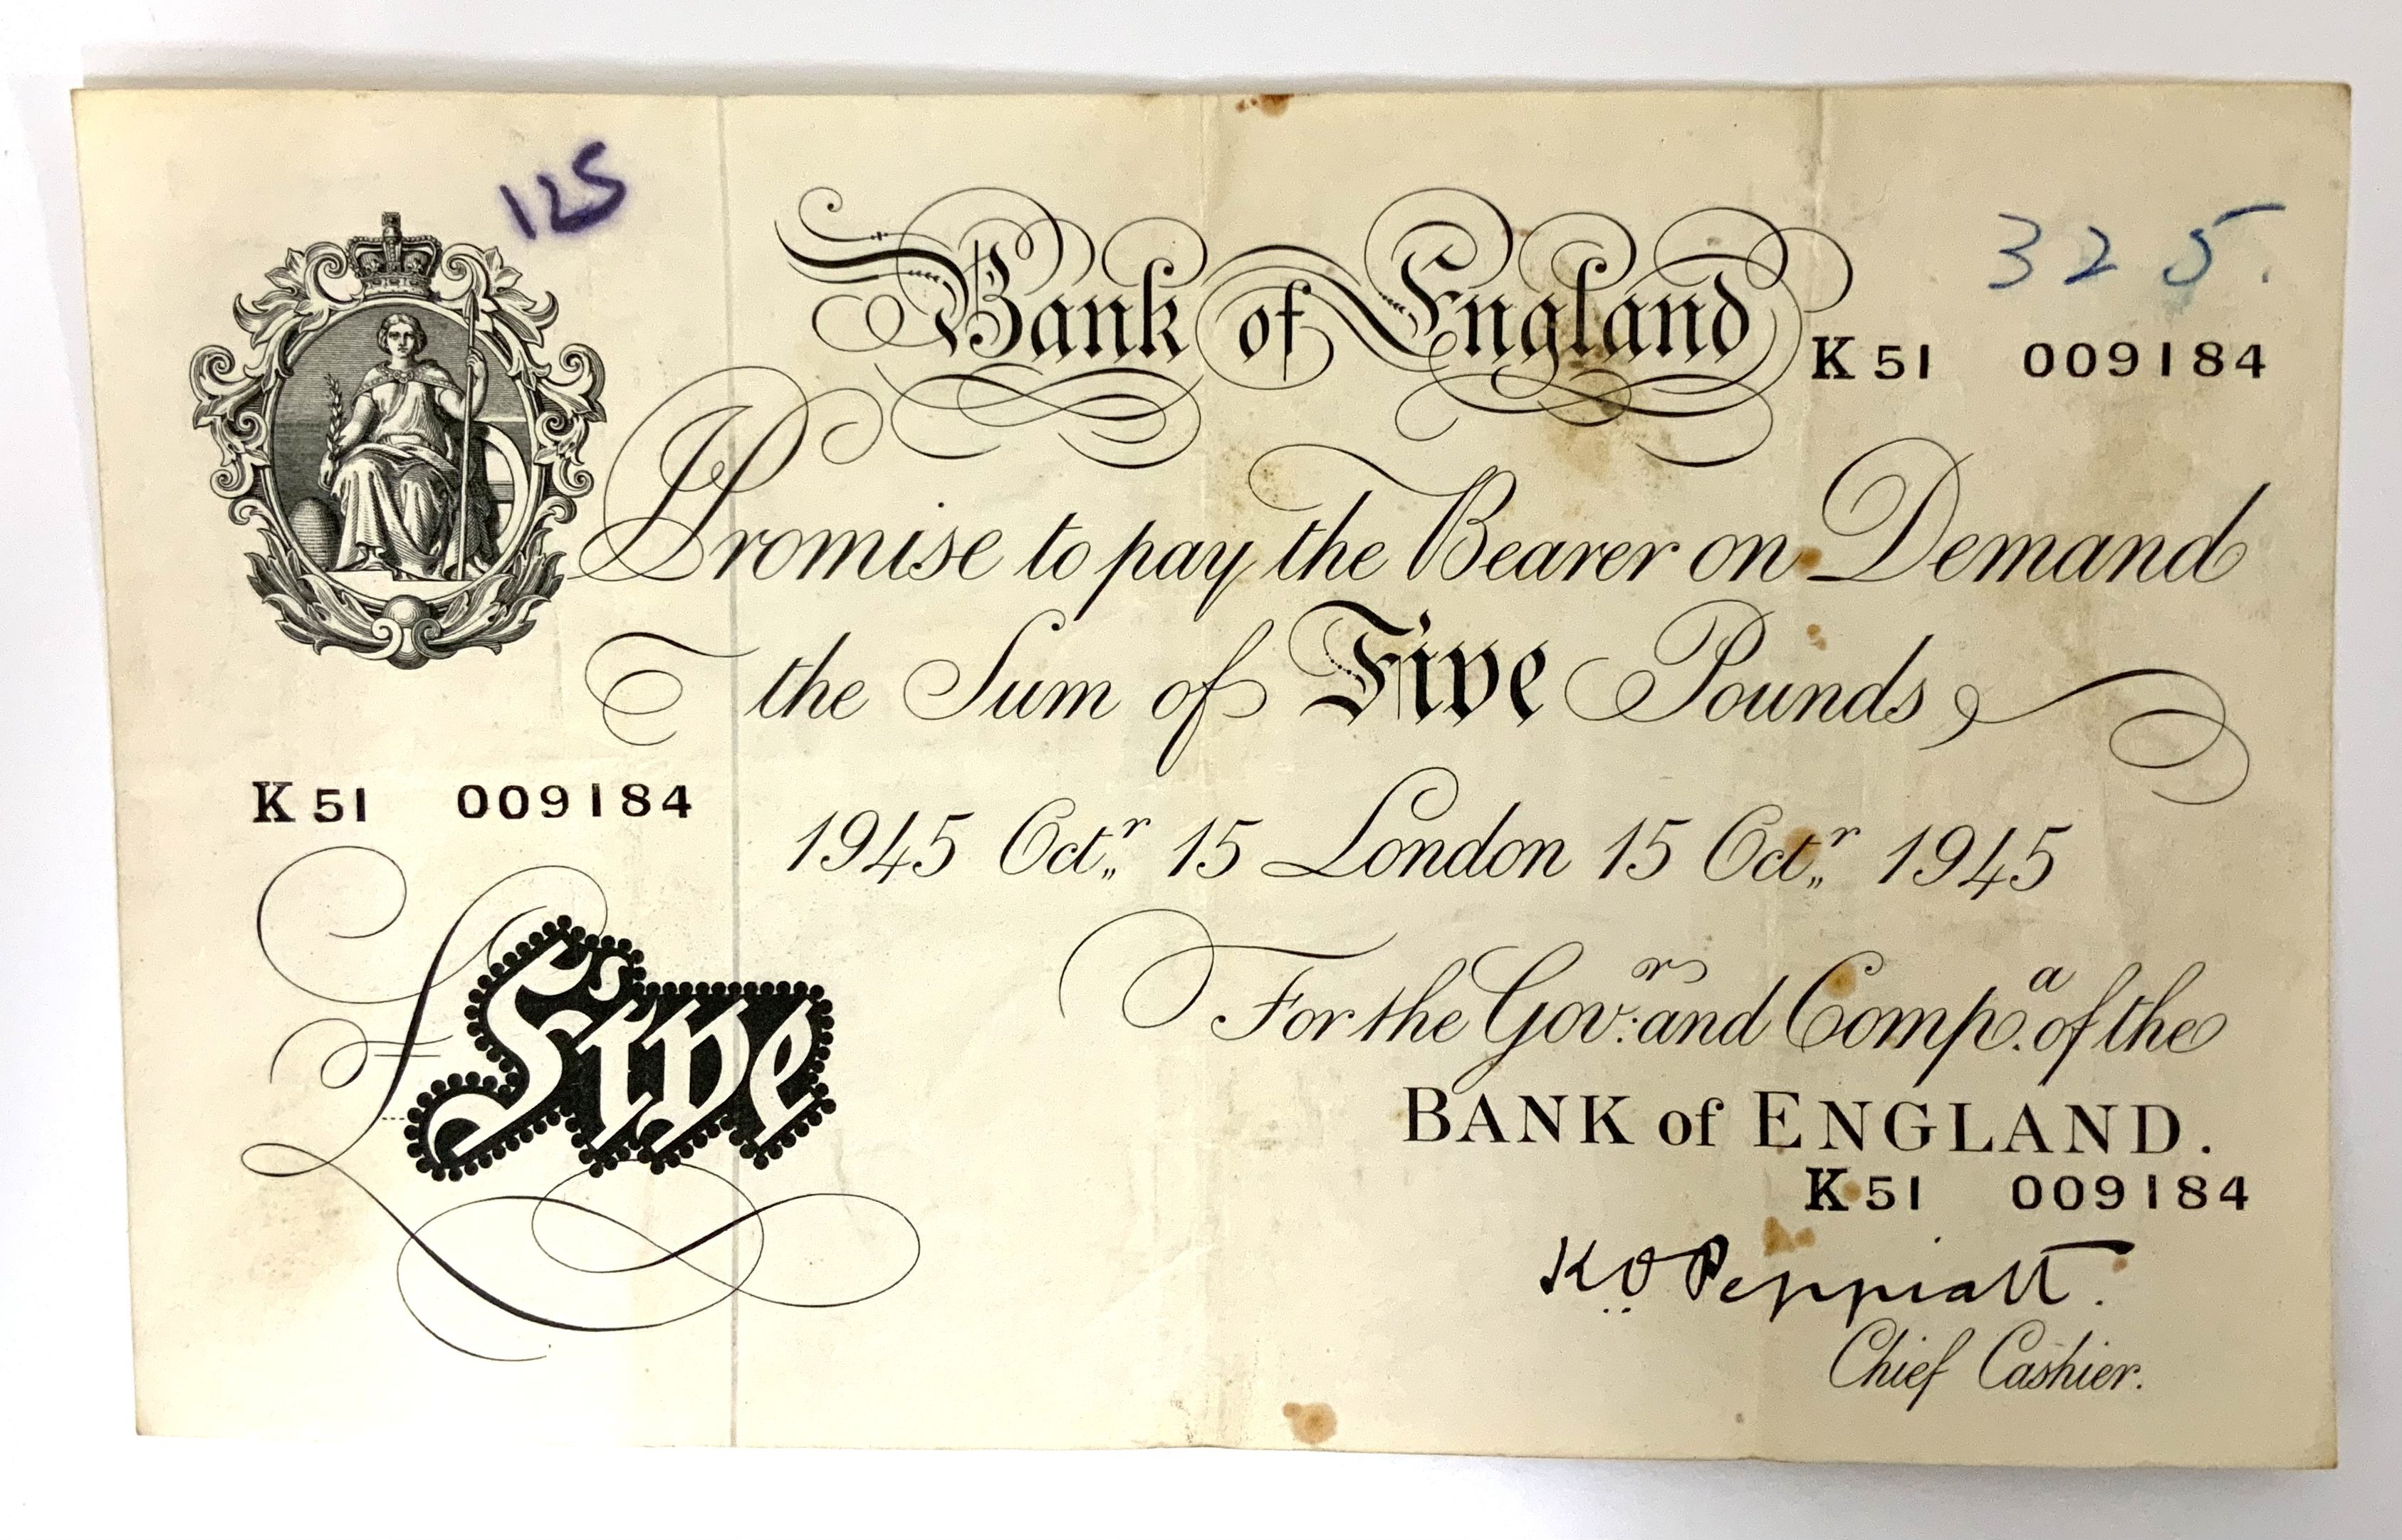 125
325.
Bank of England
K51 009184
I Promise to pay the Bearer on Demand
the Sum of Five Pounds
K51 009184
1945 Octr. 15 London 15 Octr. 1945
For the Govr. and Compa. of the
£Five
BANK of ENGLAND.
K51 009184
K O Peppiatt.
Chief Cashier.